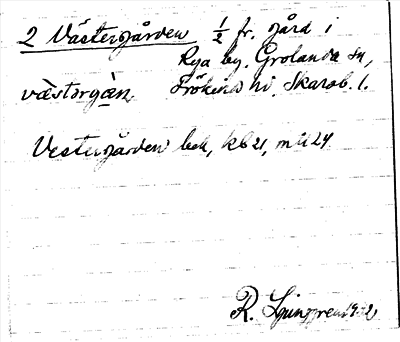 2 Västergården 1/2 fr. gård i
Rya by, Grolanda sn,
væ̀stərgàn. Frökind hd, Skarab. l.
Vestergården bek, kb 21, mtl 24.
R. Ljunggren